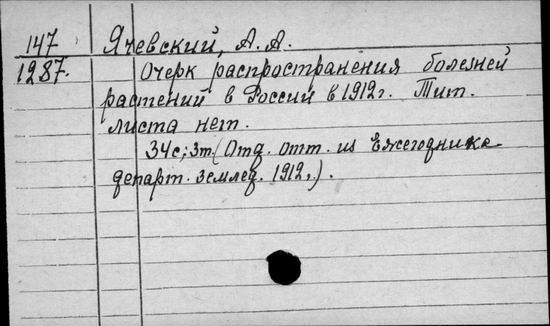 147 Ячевский, А. А.
1287. Очерк распространения болезней
растений в России в 1912г. Тит.
листа нет.
34с; 3т. (Отд. отт. из Ежегодника
департ. землед. 1912г.).